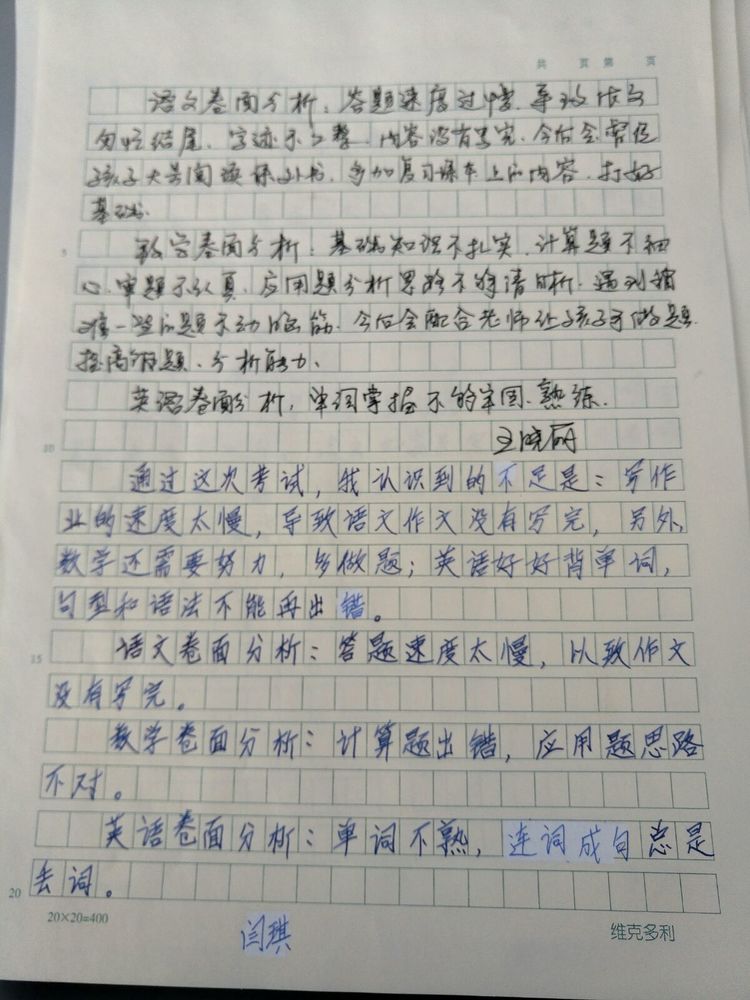 共 页 第 页
语文卷面分析：答题速度过慢，导致作文
匆忙结尾，字迹不工整，内容没有写完，今后会督促
孩子大量阅读课外书，多加复习课本上的内容，打好
基础。
5
数学卷面分析：基础知识不扎实，计算题不细
心，审题不认真，应用题分析思路不够清晰，遇到稍
难一些的题不动脑筋，今后会配合老师让孩子多做题
提高解题、分析能力、
英语卷面分析，单词掌握不的牢固、熟练.
10
王晓丽
通过这次考试，我认识到的不足是：写作
业的速度太慢，导致语文作文没有写完，另外，
数学还需要努力，多做题；英语好好背单词，
句型和语法不能再出错。
15
语文卷面分析：答题速度太慢，以致作文
没有写完。
数学卷面分析：计算题出错，应用题思路
不对。
英语卷面分析：单词不熟，连词成句总是
20
去词。
20×20=400
闫琪
维克多利